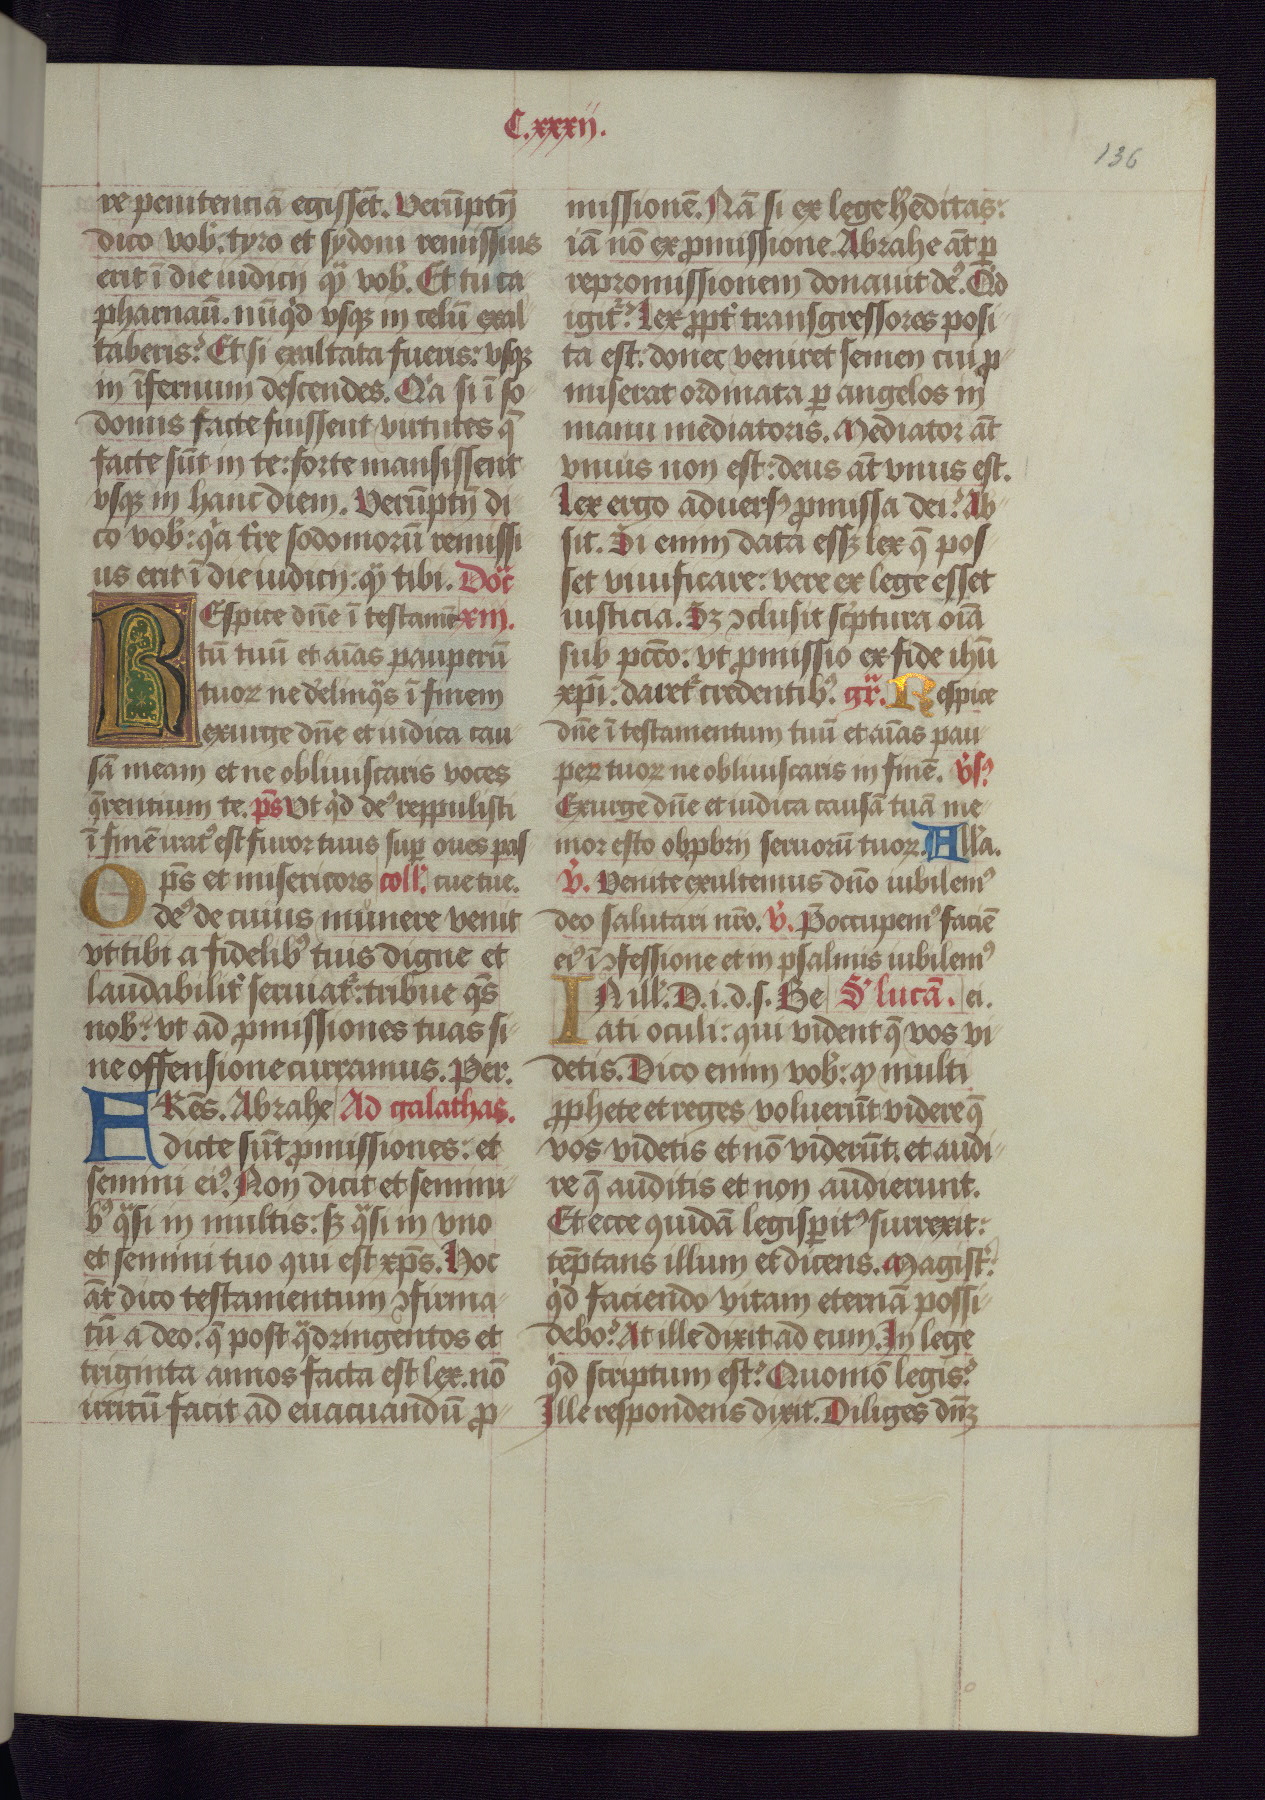 C.xxxij.
136
re penitenciā egissēt. Verūptn̄
dico vob᷎. tyro et sydoni remissius
erit ī die iudicij qᷓ vob᷎. Et tu ca
pharnaū. nūq̇d vsqꝫ in celū exal
taberis? Et si exaltata fueris: vsqꝫ
in īfernum descendes. Qᷓa si ī so
domis facte fuissent virtutes q̄
facte sūt in te: forte mansissent
vsqꝫ in hanc diem. Verūptn̄ di
co vob᷎: qᷓa tr̄e sodomorū remissi
us erit ī die iudicij: qᷓ tibi. Doᷓc
REspice dn̄e ī testamē xiij.
tū tuū et aīas pauperū
tuoꝝ ne delinqᷓs ī finem
exurge dn̄e et iudica cau
sā meam et ne obliuiscaris voces
q̄rentium te. p̄s Vt q̇d deꝰ reppulisti
ī finē iratꝰ est furor tuus suꝑ oues pas
Op̄s et misericors coll᷎. cue tue.
deꝰ de cuius munere venit
vt tibi a fidelibꝰ tuis digne et
laudabilit᷎ seruiat᷎: tribue qs̄
nob᷎: vt ad ꝓmissiones tuas si
ne offensione curramus. Per.
FRēs. Abrahe Ad galathas.
dicte sūt ꝓmissiones: et
semini eiꝰ. Non dicit et semini
bꝰ qᷓsi in multis: sꝫ qᷓsi in vno
et semini tuo qui est xp̄s. Hoc
āt dico testamentum ꝯfirma
tū a deo: q̄ post qᷓdringentos et
triginta annos facta est lex. nō
irritū facit ad euacuandū ꝓ
missionē. Nā si ex lege h᷎editas:
iā nō ex ꝓmissione. Abrahe āt ꝑ
repromissionem donauit deꝰ. Qᷓd
igit᷎? Lex ꝓpt᷎ transgressores posi
ta est: donec veniret semen cui ꝓ
miserat ordinata ꝑ angelos in
manu mediatoris. Mediator āt
vnius non est: deus āt vnus est.
Lex ergo aduersꝰ ꝓmissa dei? Ab
sit. Si enim data essꝫ lex q̄ pos
set viuificare: vere ex lege esset
iusticia. Sꝫ ꝯclusit sc᷎ptura oīa
sub pccō: vt ꝓmissio ex fide ihū
xpī: daret᷎ credentibꝰ. gr᷎. Respice
dn̄e ī testamentum tuū et aīas pau
peꝝ tuoꝝ ne obliuiscaris in finē. v̊sꝰ
Exurge dn̄e et iudica causā tuā me
mor esto obꝓbrij seruorū tuoꝝ. All᷎a.
v̊. Venite exultemus dn̄o iubilemꝰ
deo salutari nr̄o. v̊. P̄occupemꝰ faciē
eiꝰ ī ꝯfessione et in psalmis iubilemꝰ
IN ill᷎. D. i. d. s. Be S᷎ lucā. ei.
ati oculi: qui vident q̄ vos vi
detis. Dico enim vob᷎: qꝫ multi
ꝓphete et reges voluerūt videre q̄
vos videtis et nō viderūt: et audi
re q̄ auditis et non audierunt.
Et ecce quidā legisꝑitꝰ surrexit:
tēptans illum et dicens. Magist᷎.
q̇d faciendo vitam eternā possi
debo? At ille dixit ad eum. In lege
q̇d scriptum est? Quomō legis?
Ille respondens dixit. Diliges dn̄ꝫ